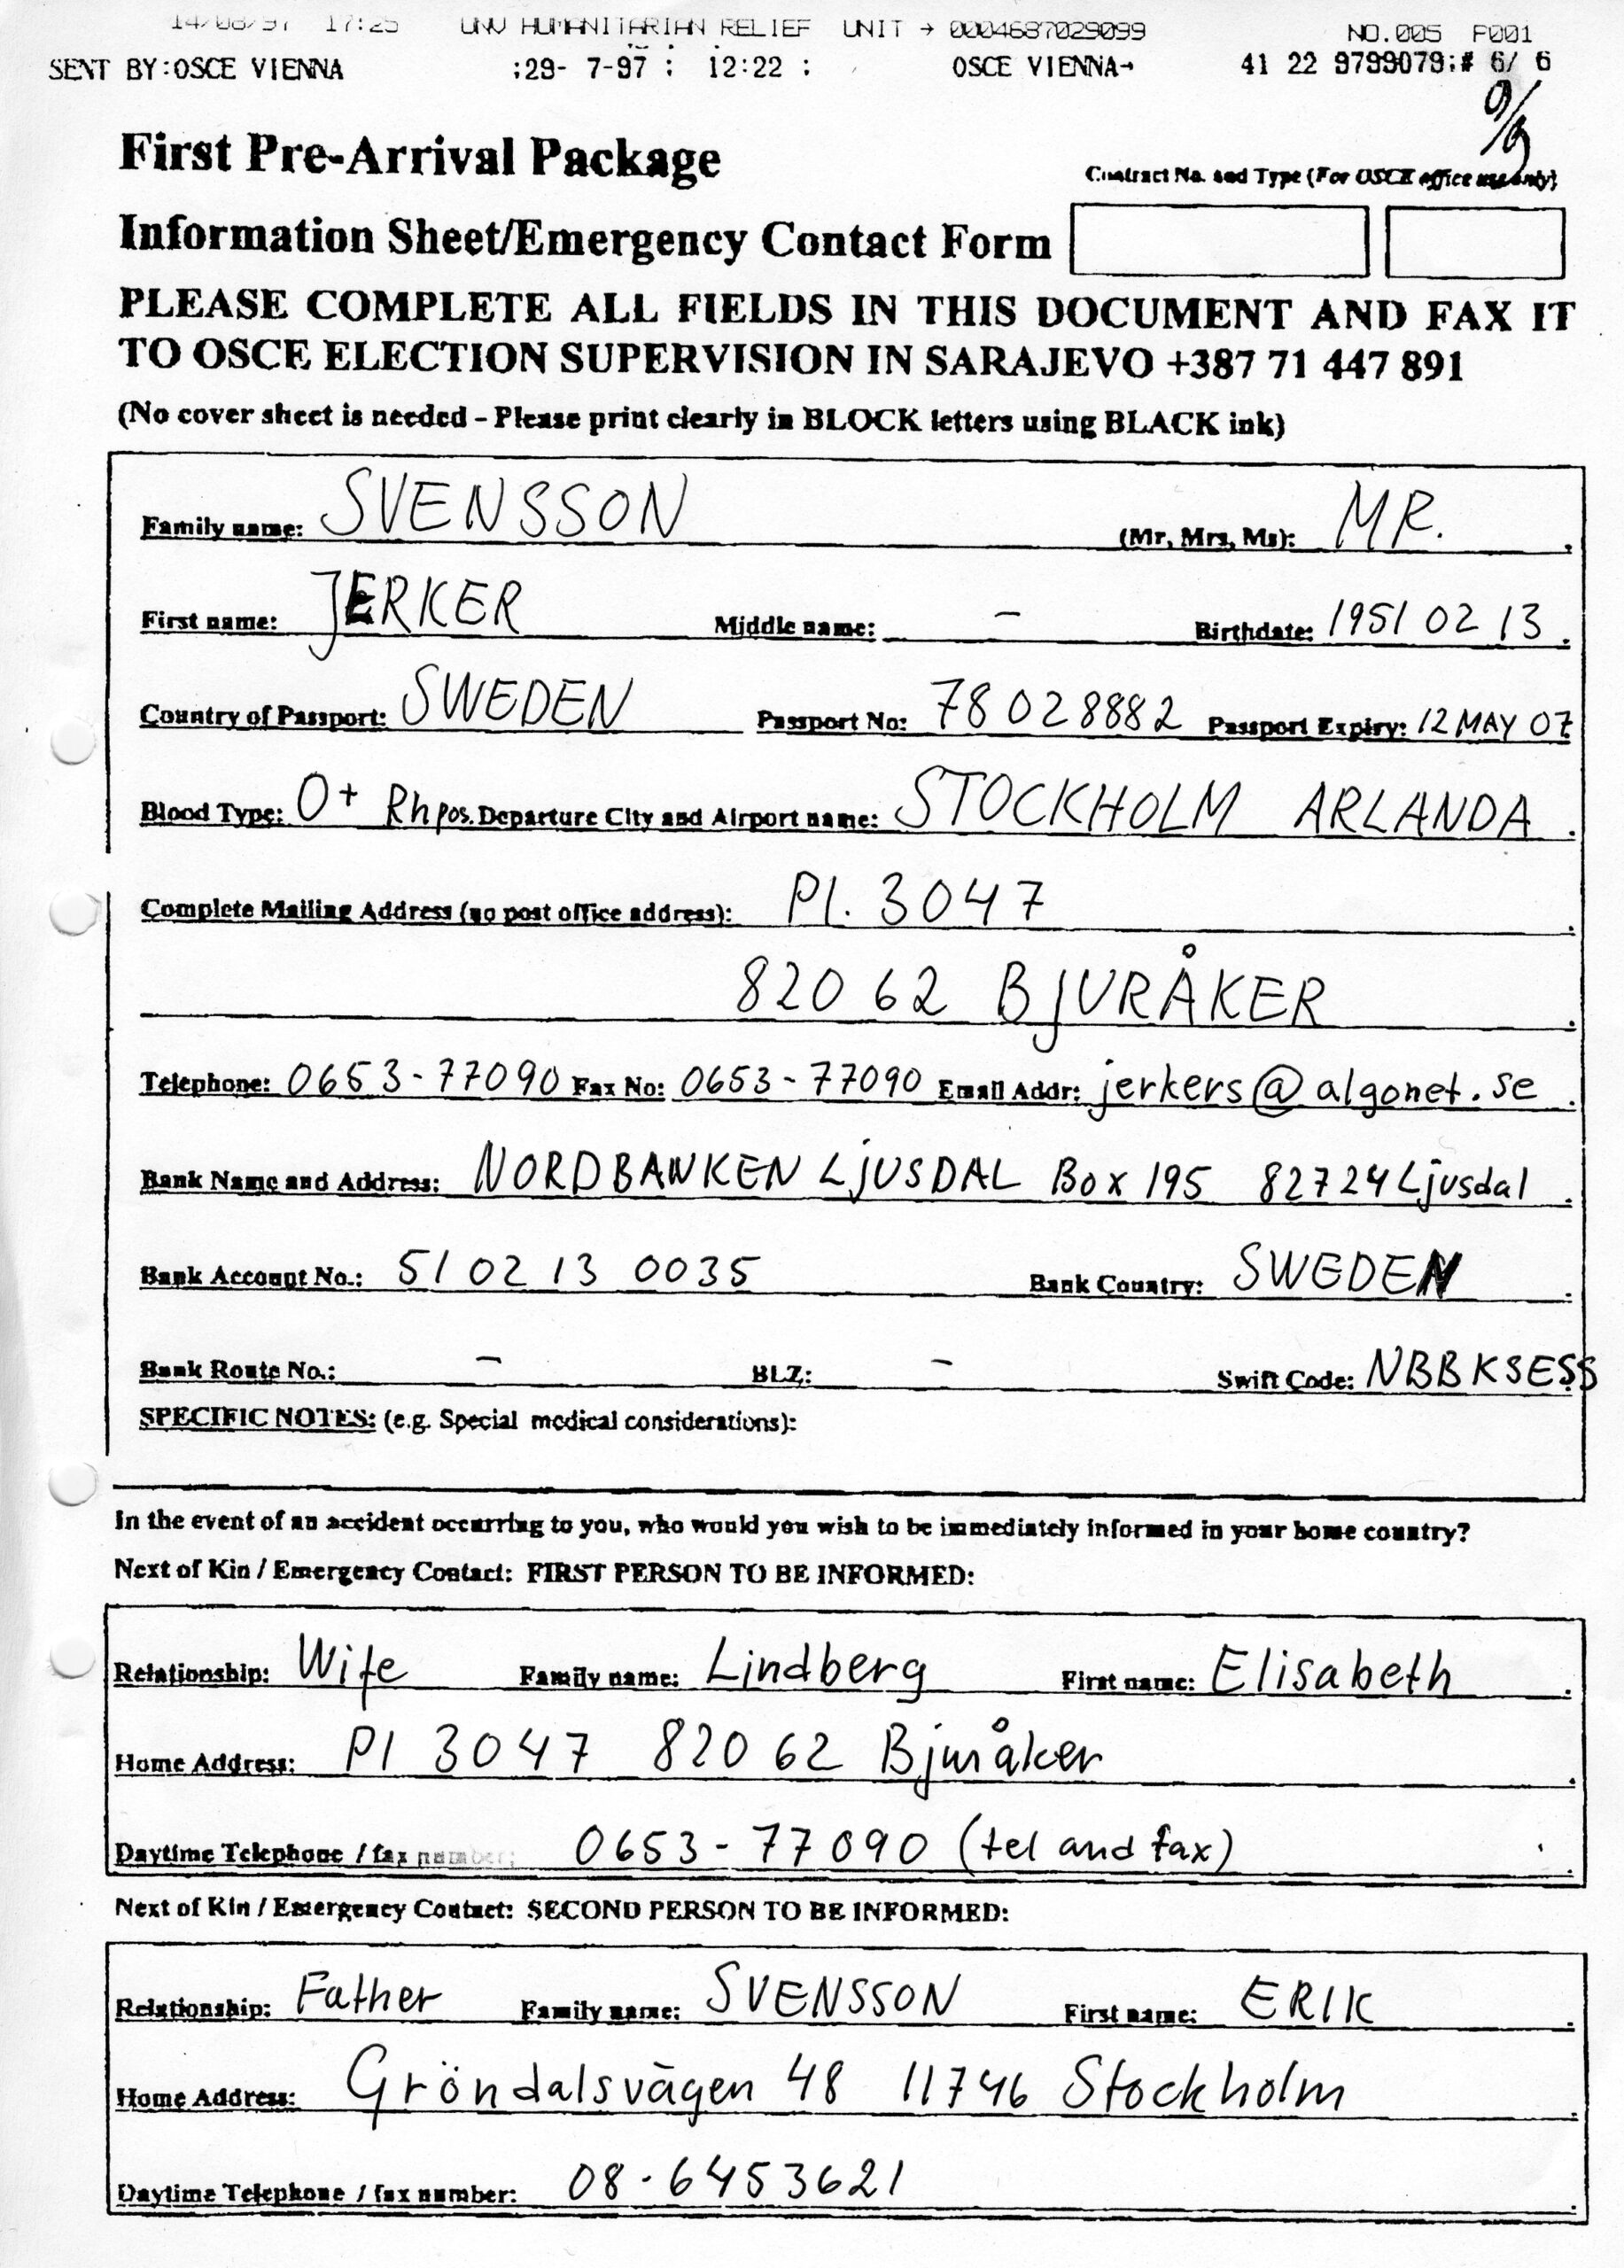 14/08/97 17:25 UNV HUMANITARIAN RELIEF UNIT → 0004687029099 NO.005 P001
SENT BY:OSCE VIENNA :29- 7-97 ; 12:22 ; OSCE VIENNA→ 41 22 9799079;# 6/ 6
First Pre-Arrival Package
Contract No. and Type (For OSCE office use only)
Information Sheet/Emergency Contact Form
PLEASE COMPLETE ALL FIELDS IN THIS DOCUMENT AND FAX IT
TO OSCE ELECTION SUPERVISION IN SARAJEVO +387 71 447 891
(No cover sheet is needed - Please print clearly in BLOCK letters using BLACK ink)
Family name: SVENSSON (Mr, Mrs, Ms): MR.
First name: JERKER Middle name: – Birthdate: 1951 02 13
Country of Passport: SWEDEN Passport No: 78028882 Passport Expiry: 12 MAY 07
Blood Type: O+ Rh pos. Departure City and Airport name: STOCKHOLM ARLANDA
Complete Mailing Address (no post office address): Pl. 3047
820 62 BJURÅKER
Telephone: 0653-77090 Fax No: 0653-77090 Email Addr: jerkers@algonet.se
Bank Name and Address: NORDBANKEN LJUSDAL Box 195 82724 Ljusdal
Bank Account No.: 51 02 13 0035 Bank Country: SWEDEN
Bank Route No.: – BLZ: – Swift Code: NBBKSESS
SPECIFIC NOTES: (e.g. Special medical considerations):
In the event of an accident occurring to you, who would you wish to be immediately informed in your home country?
Next of Kin / Emergency Contact: FIRST PERSON TO BE INFORMED:
Relationship: Wife Family name: Lindberg First name: Elisabeth
Home Address: Pl 3047 820 62 Bjuråker
Daytime Telephone / fax number: 0653-77090 (tel and fax)
Next of Kin / Emergency Contact: SECOND PERSON TO BE INFORMED:
Relationship: Father Family name: SVENSSON First name: ERIK
Home Address: Gröndalsvägen 48 11746 Stockholm
Daytime Telephone / fax number: 08-6453621